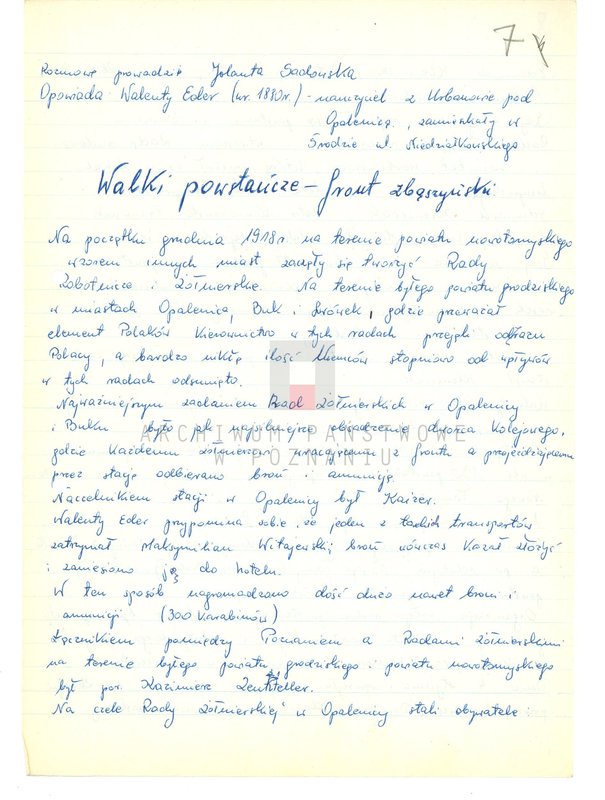 7
Rozmowę prowadzi: Jolanta Sadowska
Opowiada Walenty Eder (ur. 1880r.) - nauczyciel z Urbanowa pod
Opalenicą, zamieszkały w
Środzie ul. Niedziałkowskiego
Walki powstańcze - front zbąszyński
Na początku grudnia 1918r na terenie powiatu nowotomyskiego
wzorem innych miast zaczęły się tworzyć Rady
Robotnicze i Żołnierskie. Na terenie byłego powiatu grodziskiego
w miastach Opalenica, Buk i Lwówek, gdzie przeważał
element Polaków kierownictwo w tych radach przejęli odrazu
Polacy, a bardzo nikłą ilość Niemców stopniowo od wpływów
w tych radach odsunięto.
Najważniejszym zadaniem Rad żołnierskich w Opalenicy
i Buku było jak najsilniejsze obsadzenie dworca kolejowego,
gdzie każdemu żołnierzowi wracającemu z frontu a przejeżdżającemu
przez stację odbierano broń i amunicję.
Naczelnikiem stacji w Opalenicy był Kaiser.
Walenty Eder przypomina sobie, że jeden z takich transportów
zatrzymał Maksymilian Witajewski, broń wówczas kazał złożyć
i zaniesiono ją do hotelu.
W ten sposób nagromadzono dość dużo nawet broni i
amunicji (300 karabinów)
Łącznikiem pomiędzy Poznaniem a Radami żołnierskimi
na terenie byłego powiatu grodziskiego i powiatu nowotomyskiego
był por. Kazimierz Zenkteller.
Na czele Rady żołnierskiej w Opalenicy stali obywatele:
ARCHIWUM PAŃSTWOWE
W POZNANIU